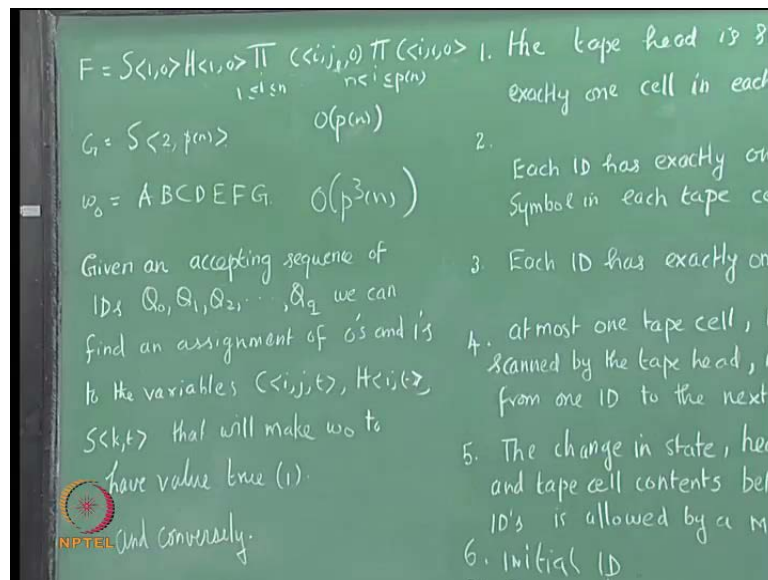 F = S<1,0> H<1,0> Π C<i,j_i,0> Π C<i,1,0>
1≤i≤n n<i≤p(n)
O(p(n))
G = S<2, p(n)>
w₀ = A B C D E F G. O(p³(n))
Given an accepting sequence of
IDs Q₀, Q₁, Q₂, ..., Q_q we can
find an assignment of 0's and 1's
to the variables C<i,j,t>, H<i,t>,
S<k,t> that will make w₀ to
have value true (1).
and conversely.
NPTEL
1. The tape head is
exactly one cell in each
2.
Each ID has exactly
Symbol in each tape
3. Each ID has exactly
4. atmost one tape cell,
scanned by the tape head,
from one ID to the next
5. The change in state,
and tape cell contents
ID's is allowed by a
6. initial ID